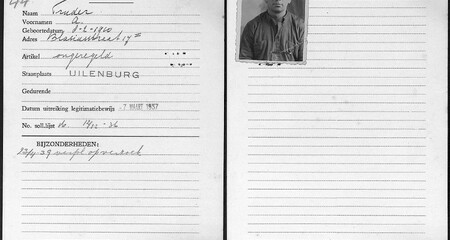 Naam Pruder
Voornamen A.
Geboortedatum 8-2-1910
Adres Blasiusstraat
Artikel ongeregeld
Staanplaats UILENBURG
Gedurende
Datum uitreiking legitimatiebewijs -7 MAART 1937
No. soll.lijst do. 14/12-36
BIJZONDERHEDEN:
opverzoek